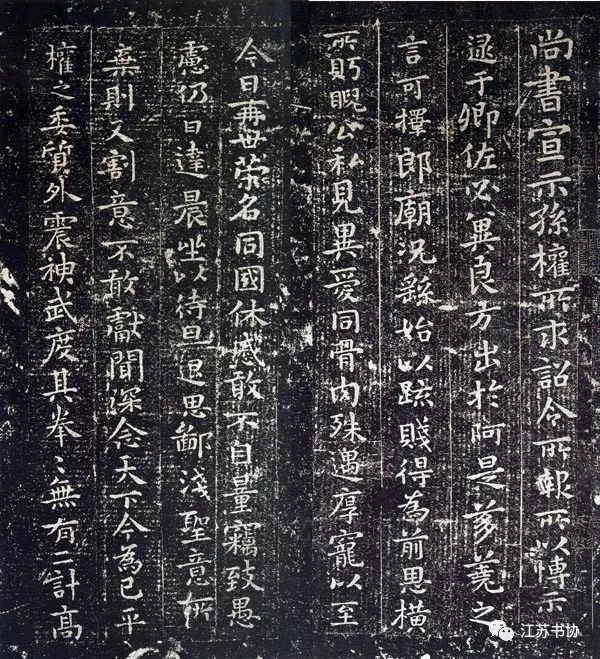 尚書宣示孫權所求詔令所報所以博示
逮于卿佐必冀良方出於阿是芻蕘之
言可擇郎廟況繇始以疏賤得為前恩橫
所眄睨公私見異愛同骨肉殊遇厚寵以至
今日再世榮名同國休慼敢不自量竊致愚
慮仍日達晨坐以待旦退思鄙淺聖意所
棄則又割意不敢獻聞深念天下今為已平
權之委質外震神武度其拳〻無有二計高
江苏书协